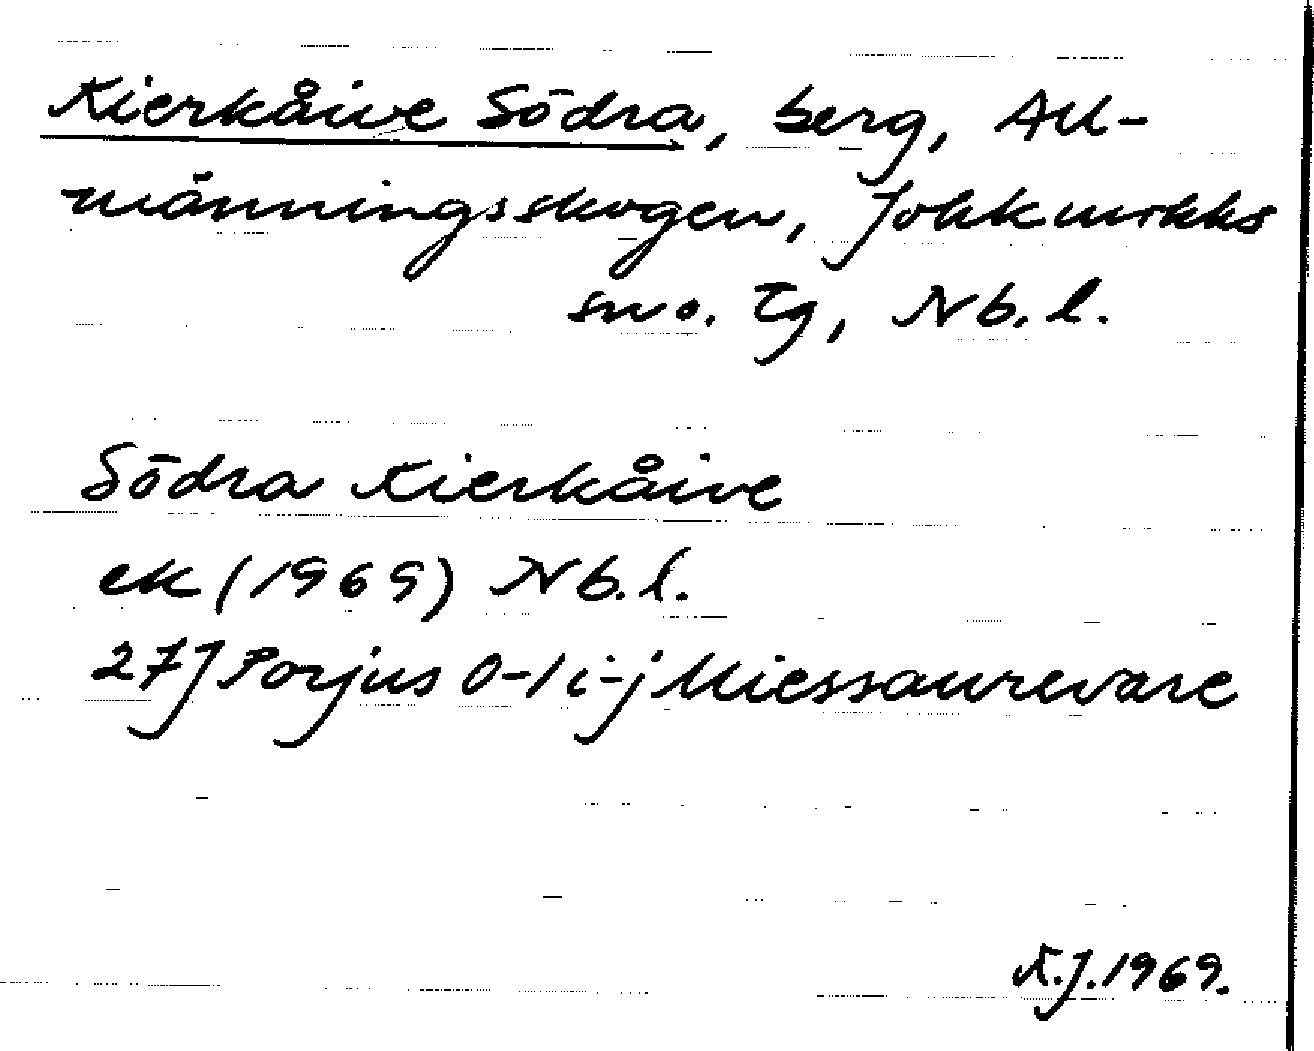 Kierkåive Södra, berg, All-
männingsskogen, Jokkmokks
sno. Tg, Nb. l.
Södra Kierkåive
ek (1969) Nb. l.
27J Porjus 0-1 i-j Miessaurevare
K.J. 1969.